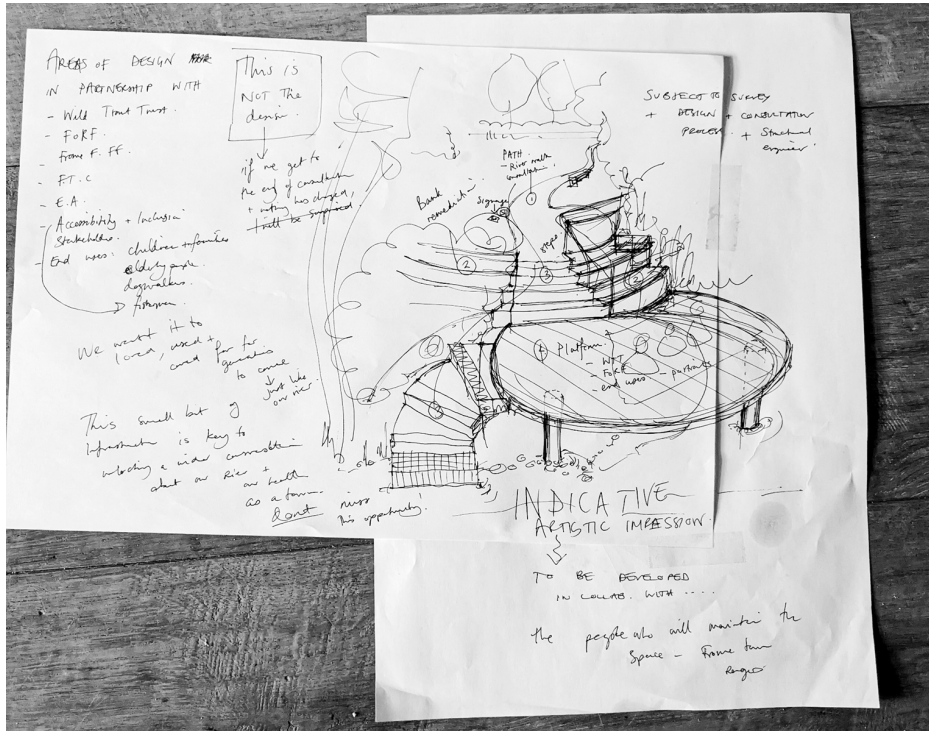 AREAS OF DESIGN
IN PARTNERSHIP WITH
- Wild Trout Trust.
- FORF.
- Frome F. FF.
- F.T.C
- E.A.
- Accessibility + Inclusion
Stakeholders.
- End uses: children + families
elderly people.
dogwalkers
fishermen.
We want it to
loved, used +
cared for for
generations
to come
just like
our river.
This small bit of
Infrastructure is key to
unlocking a wider conversation
about our River +
our health
as a town.
Don't miss
this opportunity!
This is
NOT The
design.
if we get to
the end of consultation
+ voting has closed,
I will be surprised.
Bank
remediation
signage
PATH.
- River walk
1
steps
2
3
2
1 Platform.
- WTT
- FORF
- end uses - partners
SUBJECT TO SURVEY
+ DESIGN + CONSULTATION
PROCESS. + Structural
engineer.
INDICATIVE
ARTISTIC IMPRESSION.
TO BE DEVELOPED
IN COLLAB. WITH ....
the people who will maintain the
Space - Frome town
Rangers